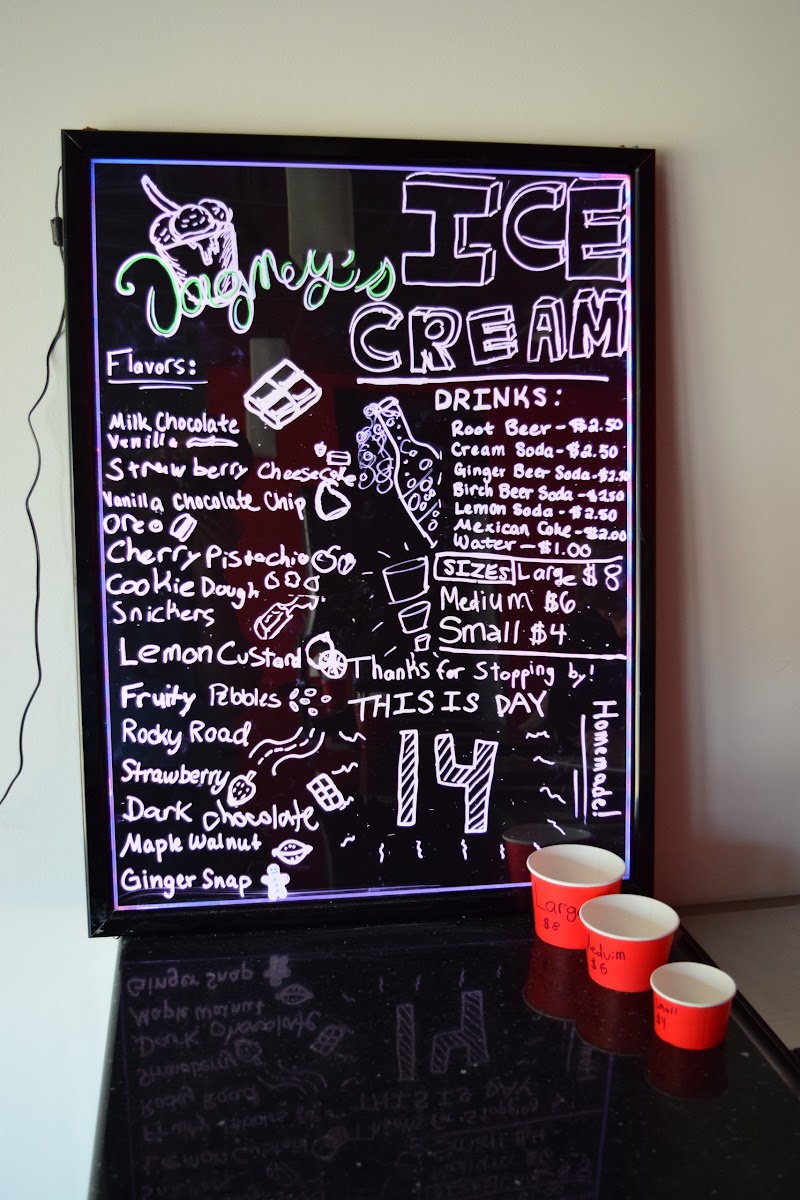 Dagney's
ICE
CREAM
Flavors:
Milk Chocolate
Vanilla
Strawberry Cheesecake
Vanilla Chocolate Chip
Oreo
Cherry Pistachio
Cookie Dough
Snickers
Lemon Custard
Fruity Pebbles
Rocky Road
Strawberry
Dark Chocolate
Maple Walnut
Ginger Snap
DRINKS:
Root Beer - $2.50
Cream Soda - $2.50
Ginger Beer Soda - $2.50
Birch Beer Soda - $2.50
Lemon Soda - $2.50
Mexican Coke - $2.00
Water - $1.00
SIZES Large $8
Medium $6
Small $4
Thanks for Stopping by!
THIS IS DAY
14
Homemade!
Large
$8
Meduim
$6
Small
$4